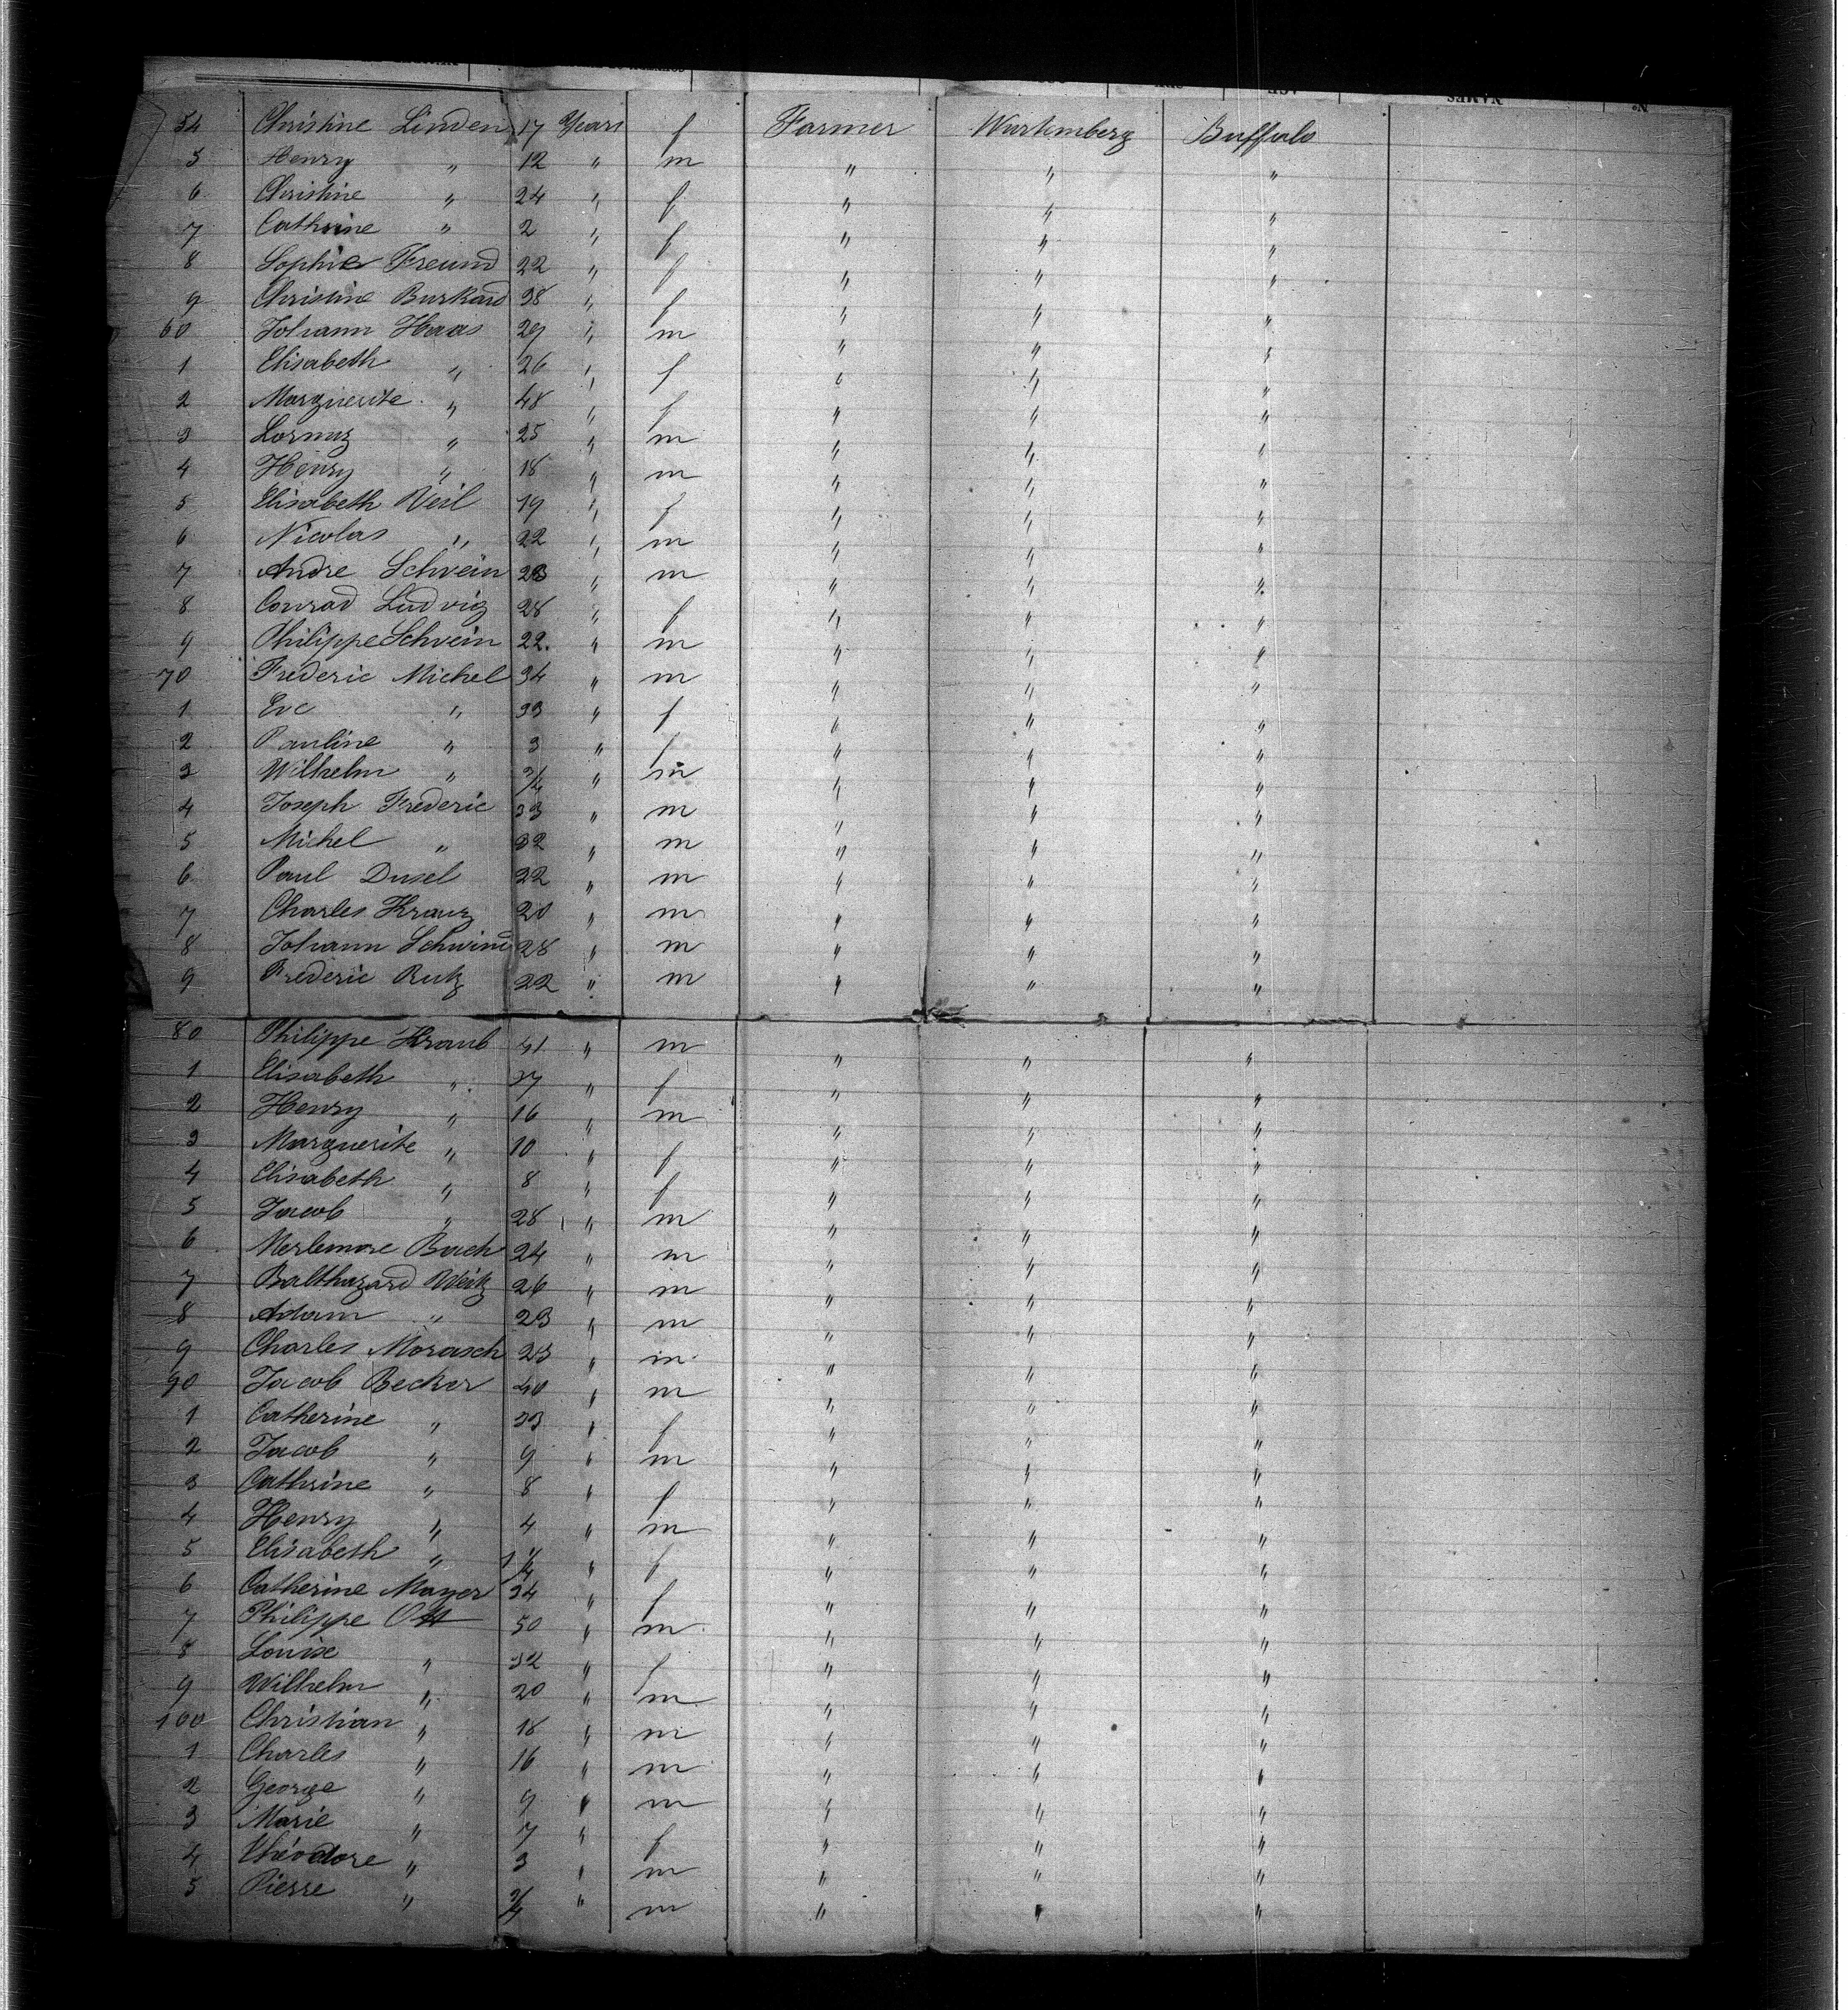 54 Christine Linden 17 Years f Farmer Wurtemberg Buffalo
5 Henry " 12 " m " " "
6 Christine " 24 " f " " "
7 Cathrine " 2 " f " " "
8 Sophie Freund 22 " f " " "
9 Christine Burkard 38 " f " " "
60 Johann Haas 29 " m " " "
1 Elisabeth " 26 " f " " "
2 Marguerite " 48 " f " " "
3 " 25 " m " " "
4 Henry " 18 " m " " "
5 Elisabeth Weil 19 " f " " "
6 Nicolas " 22 " m " " "
7 Andre Schvein " m " " "
8 Conrad Ludvig 28 " f " " "
9 Philippe Schvein 22 " m " " "
70 Frederic Michel 34 " m " " "
1 Eve " 33 " f " " "
2 Pauline " 3 " f " " "
3 Wilhelm " 3/4 " m " " "
4 Joseph Frederic 33 " m " " "
5 Michel " 32 " m " " "
6 Paul Dusel 22 " m " " "
7 Charles Kranz 20 " m " " "
8 Johann Schwind 28 " m " " "
9 Frederic Rutz 22 " m " " "
80 Philippe Kraub 41 " m " " "
1 Elisabeth " 37 " f " " "
2 Henry " 16 " m " " "
3 Marguerite " 10 " f " " "
4 Elisabeth " 8 " f " " "
5 Jacob " 28 " m " " "
6 Bach 24 " m " " "
7 Balthazard Weitz 26 " m " " "
8 Adam " 23 " m " " "
9 Charles Morasch 23 " m " " "
90 Jacob Becker 40 " m " " "
1 Catherine " 33 " f " " "
2 Jacob " 9 " m " " "
3 Cathrine " 8 " f " " "
4 Henry " 4 " m " " "
5 Elisabeth " 1 1/4 " f " " "
6 Catherine Mayer 34 " f " " "
7 Philippe Ott 50 " m " " "
8 Louise " 32 " f " " "
9 Wilhelm " 20 " m " " "
100 Christian " 18 " m " " "
1 Charles " 16 " m " " "
2 George " 9 " m " " "
3 Marie " 7 " f " " "
4 Théodore " 3 " m " " "
5 Pierre " 3/4 " m " " "